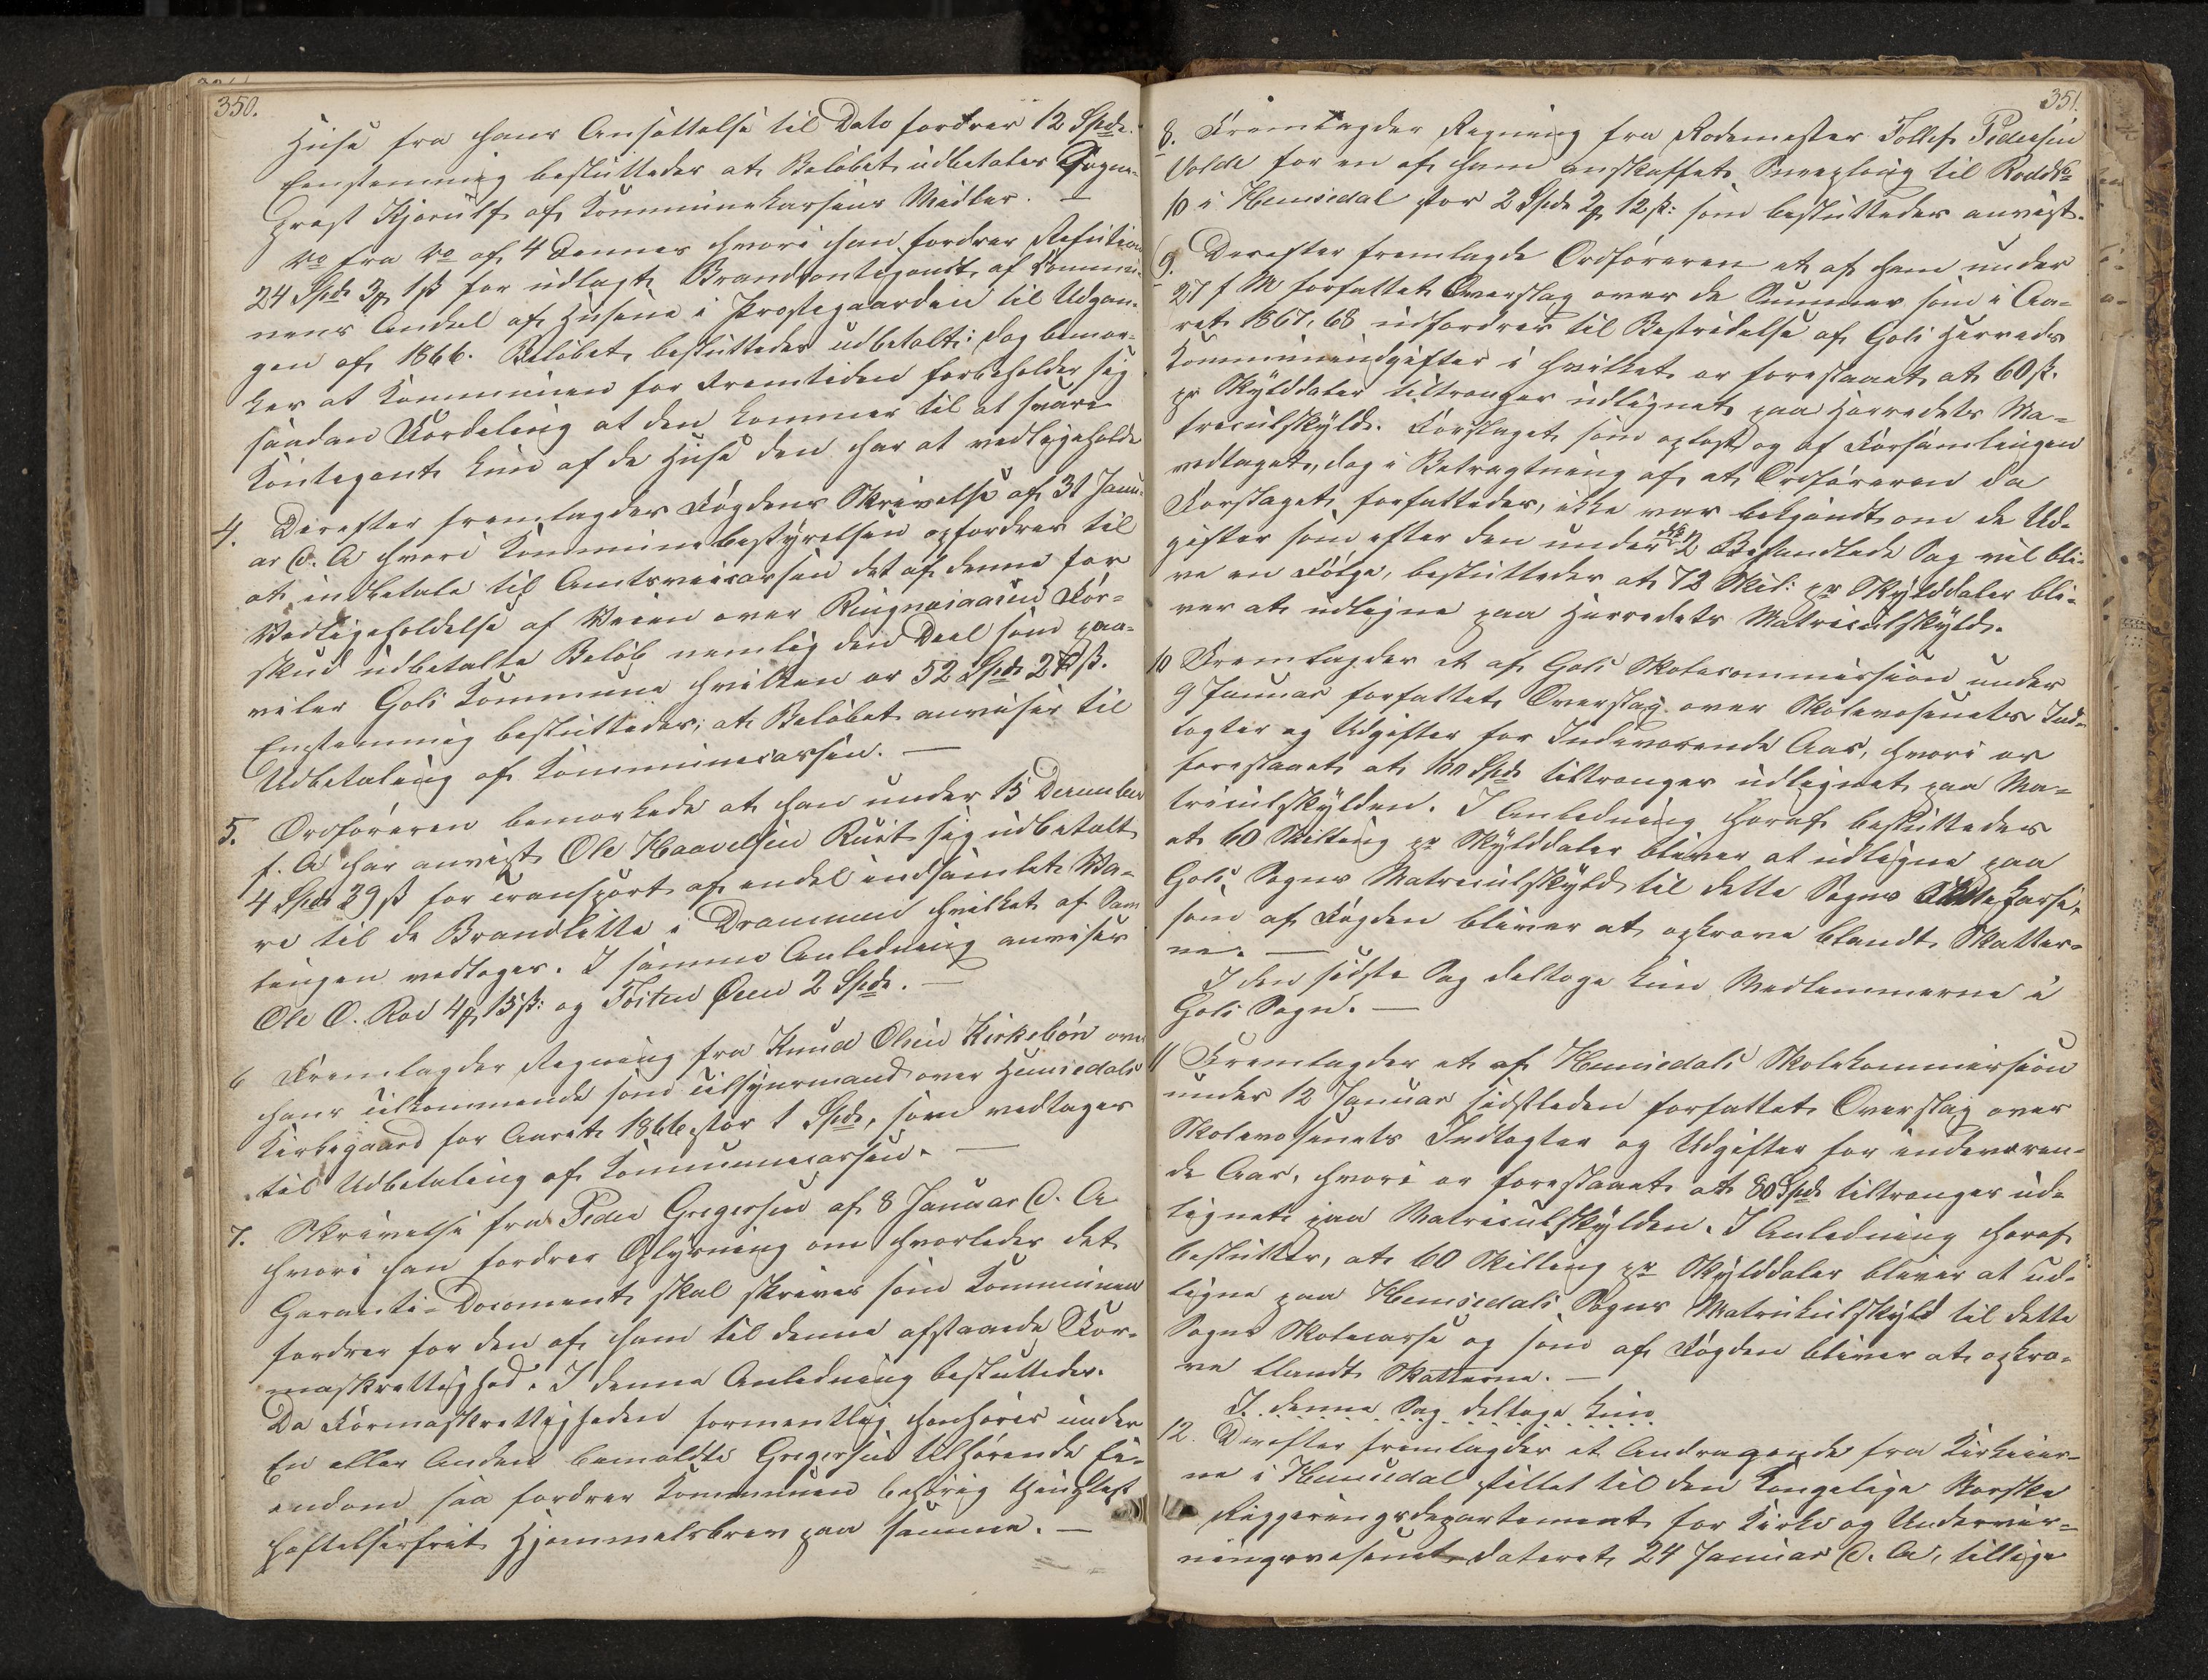 350.
Huse fra hans Ansættelse til Dato fordrer 12 Spd.
Eenstemmig besluttedes at Beløbet udbetales Sogne-
prest Kjerulf af Kommunekassens Midler. —
Do fra Do af 4 Dennes hvori han fordrer Refusion
24 Spd 3 # 1 ß for udlagt Brandcontegent af Kommu-
nens Andeel af Husene i Prestegaarden til Udgan-
gen af 1866. Beløbet besluttedes udbetalt: dog bemær-
kes at Kommunen for Fremtiden forbeholder sig
saadan Fordeling at den kommer til at svare
Kontegent kun af de Huse den har at vedligeholde
4. Derefter fremlagdes Fogdens Skrivelse af 31 Janu-
ar d. A hvori Kommunebestyrelsen opfordres til
at indbetale til Amtsveicassen det af denne for
Vedligeholdelse af Veien over Ringneiaasen For-
skud udbetalte Beløb nemlig den Deel som paa-
viler Gols Kommune hvilken er 52 Spd 2 ß.
Enstemmig besluttedes, at Beløbet anvises til
Udbetaling af Kommunecassen. —
5. Ordføreren bemærkede at han under 15 December
f. A har anvist Ole Haavelsen Rust sig udbetalt
4 Spd 39 ß for Transport af endel indsamlet Va-
re til de Brandlidte i Drammen hvilket af Sam
lingen vedtoges. I samme Anledning anvises
Ole O. Rod 4 # 15 ß: og Torsten Øen 2 Spd. —
6 Fremlagdes Regning fra Knud Olsen Kirkebøn over
hans Tilkommende som Tilsynsmand over Hemsedals
Kirkegaard for Aaret 1866 stor 1 Spd, som vedtages
til Udbetaling af Kommunecassen. —
7. Skrivelse fra Peder Gregersen af 8 Januar d. A
hvori han fordrer Oplysning om hvorledes det
Garanti-Document skal skrives som Kommunen
fordrer for den af ham til denne afstaaede For-
maskrettighed. I denne Anledning besluttedes.
Da Formaskrettigheden formentlig henhører under
En eller Anden bemeldte Gregersen tilhørende Ei-
endom saa fordrer Kommunen behørig thinglæst
heftelsesfrit Hjemmelsbrev paa samme. —
351.
8. Fremlagdes Regning fra Rodemester Tollef Pedersen
Volde for en af ham anskaffet Sneeploug til Rodde
10 i Hemsedal stor 2 Spd 2 # 12 ß: som besluttedes anvist.
9. Derefter fremlagde Ordføreren et af ham under
27 f M forfattet Overslag over de Summer som i Aa-
ret 1867/68 udfordres til Bestridelse af Gols Herreds
Kommuneudgifter i hvilket er foreslaaet at 60 ß.
pr Skylddaler tiltrænges udlignet paa Herredets Ma-
triculskyld. Forslaget som oplæst og af Forsamlingen
vedtaget, dog i Betragtning af, at Ordføreren da
Forslaget forfattedes, ikke var bekjendt om de Ud-
gifter som efter den under No 2 Behandlede Sag vil bli-
ve en Følge, besluttedes at 72 Skil: pr Skylddaler bli-
ver at udligne paa Herredets Matriculskyld.
10 Fremlagdes et af Gols Skolecommission under
9 Januar forfattet Overslag over Skolevæsenets Ind-
tægter og Udgifter for Indeværende Aar, hvori er
foreslaaet at 100 Spd tiltrænges udlignet paa Ma-
triculskylden. I Anledning heraf besluttedes
at 60 Skilling pr Skylddaler bliver at udligne paa
Gols Sogns Matriculskyld til dette Sogns Skolekasse,
som af Fogden bliver at opkræve blandt Skatter-
ne. —
I den sidste Sag deltoge kun Medlemmerne i
Gols Sogn. —
11 Fremlagdes et af Hemsedals Skolekommission
under 12 Januar sidstleden forfattet Overslag over
Skolevæsenets Indtægter og Udgifter for indeværen-
de Aar, hvori er foreslaaet at 80 Spd tiltrænges ud-
lignet paa Matriculskylden. I Anledning heraf
besluttes, at 60 Skilling pr Skylddaler bliver at ud-
ligne paa Hemsedals Sogns Matrikulskyld til dette
Sogns Skolecasse og som af Fogden bliver at opkræ-
ve blandt Skatterne. —
I denne Sag deltoge kun
12. Derefter fremlagdes et Andragende fra Kirkeeier-
ne i Hemsedal stillet til den Kongelige Norske
Reggeringsdepartement for Kirke og Undervis-
ningsvæsenet dateret 24 Januar d. A, tillige